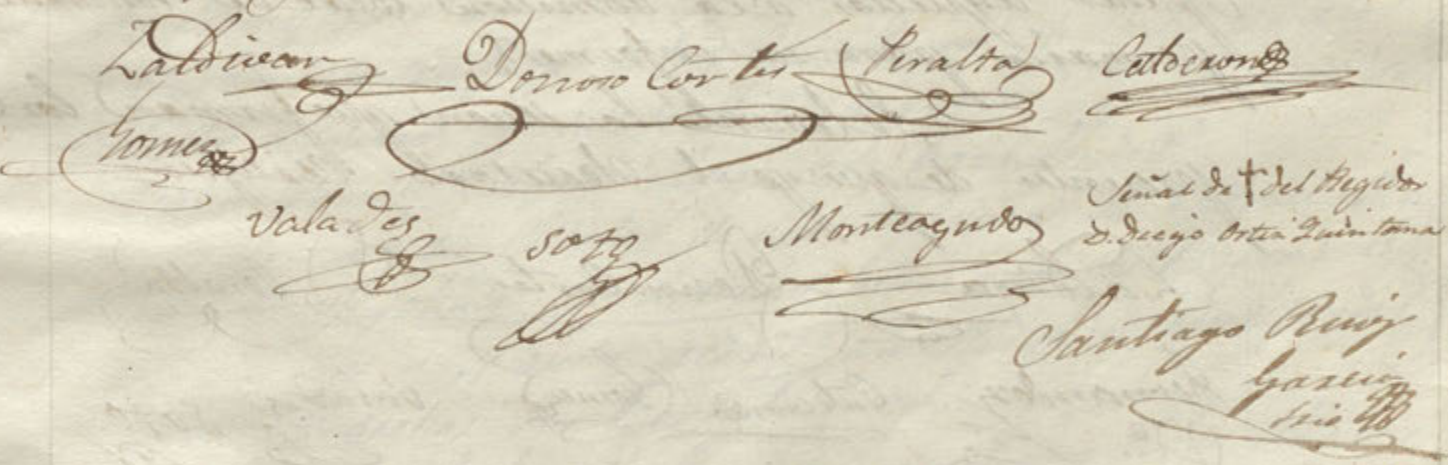 Zaldivar Donoso Cortés Peralta Calderon
Gomez
Valades Soto Monteagudo
Señal de † del Regidor
D. Diego Ortiz Quintana
Santiago Ruiz
Garcia
Srio